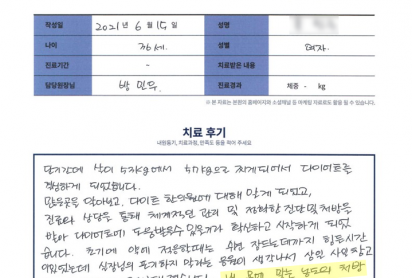 작성일 2021년 6월 15일 성명
나이 36세. 성별 여자.
진료기간 - 치료받은 내용
담당원장님 방민우 진료경과 체중 - kg
※ 본 표기는 본원의 홈페이지와 소셜채널 등 마케팅 자료로도 활용 될 수 있습니다.
치료 후기
내원동기, 치료과정, 만족도 등을 적어 주세요
단기간에 살이 53kg에서 57kg으로 찌게되어서 다이어트를
결심하게 되었습니다.
많은곳을 알아보고, 다이트 한의원에 대해 알게 되었고,
진료와 상담을 통해 체계적인 관리 및 정확한 진단및처방을
받아 다이어트에 도움받을수 있을거라 확신하고 시작하게 되었
습니다. 초기에 약에 적응할때는 수면 잠드는데까지 힘든시간
이있었는데 실장님의 포기하지 말라는 응원이 생각나서